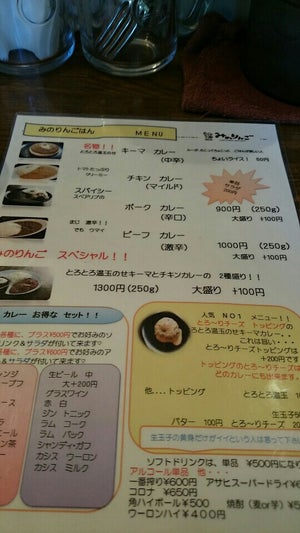 みのりんごはん MENU
みのりんご
名物！！
とろとろ温玉のせ キーマ カレー
(中辛)
ちょいライス！ 50円
トマトたっぷり
クリーミー チキン カレー
(マイルド)
単品
サラダ
200円
スパイシー
スペアリブの ポーク カレー 900円 (250g)
(辛口) 大盛り +100円
まじ 激辛！！
でも ウマイ ビーフ カレー 1000円 (250g)
(激辛) 大盛り +100円
みのりんご スペシャル！！
とろとろ温玉のせキーマとチキンカレーの 2種盛り！！
1300円(250g) 大盛り +100円
カレー お得な セット！！
各種に、プラス¥600円でお好みのソ
リンク＆サラダが付いて来ます♡
各種に、プラス¥500円でお好みのア
＆サラダが付いて来ます♡
生ビール 中
大+200円
グラスワイン
赤 白
ジン トニック
ラム コーク
ラム バック
シャンディ・ガフ
カシス ウーロン
カシス ミルク
人気 NO1 メニュー！！
とろ～りチーズ トッピング
とろとろ温玉のせキーマカレー。
これは旨い・・・
とろ～りチーズトッピングは
+200円です
とろ～りチーズトッピングは
どのカレーにも出来ます。
他....トッピング
とろとろ温玉
生玉子
バター 100円 とろろ 20
生玉子の黄身だけがイイという人は言って下さい
ソフトドリンクは、単品 ¥500円になり
アルコール単品 他・・・
一番搾り¥600円 アサヒスーパードライ¥6
コロナ ¥650円
角ハイボール¥500 焼酎（麦or芋）¥5
ウーロンハイ¥400円